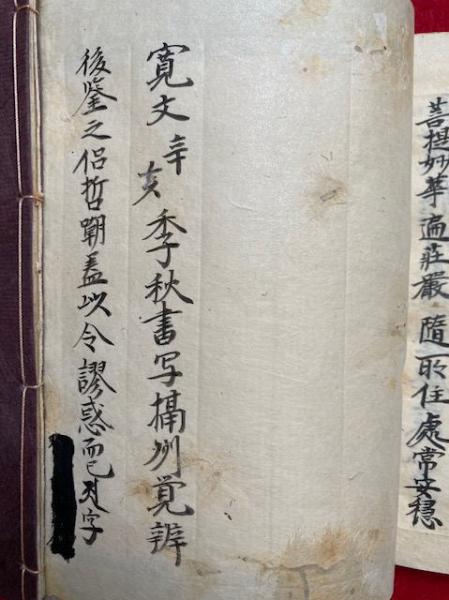 菩提妙華遍莊嚴 隨所住處常安穏
寛文辛亥季秋書写州覚辨
後鑒之侶哲嘲盖以令謬惑而已字